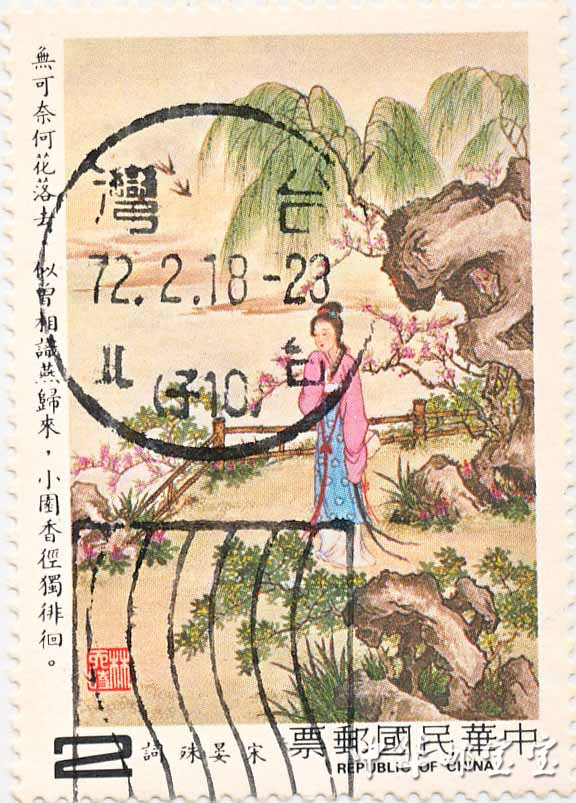 無可奈何花落去，似曾相識燕歸來，小園香徑獨徘徊。
台灣
72.2.18-23
台北
(子10)
宋晏殊詞
中華民國郵票
REPUBLIC OF CHINA
2